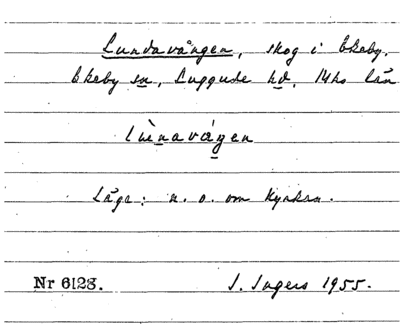 Lundavången, skog i Ekeby.
Ekeby sn, Luggude hd, Mhs län
Läge: n. o. om kyrkan.
Nr 6128. I. Ingers 1955.